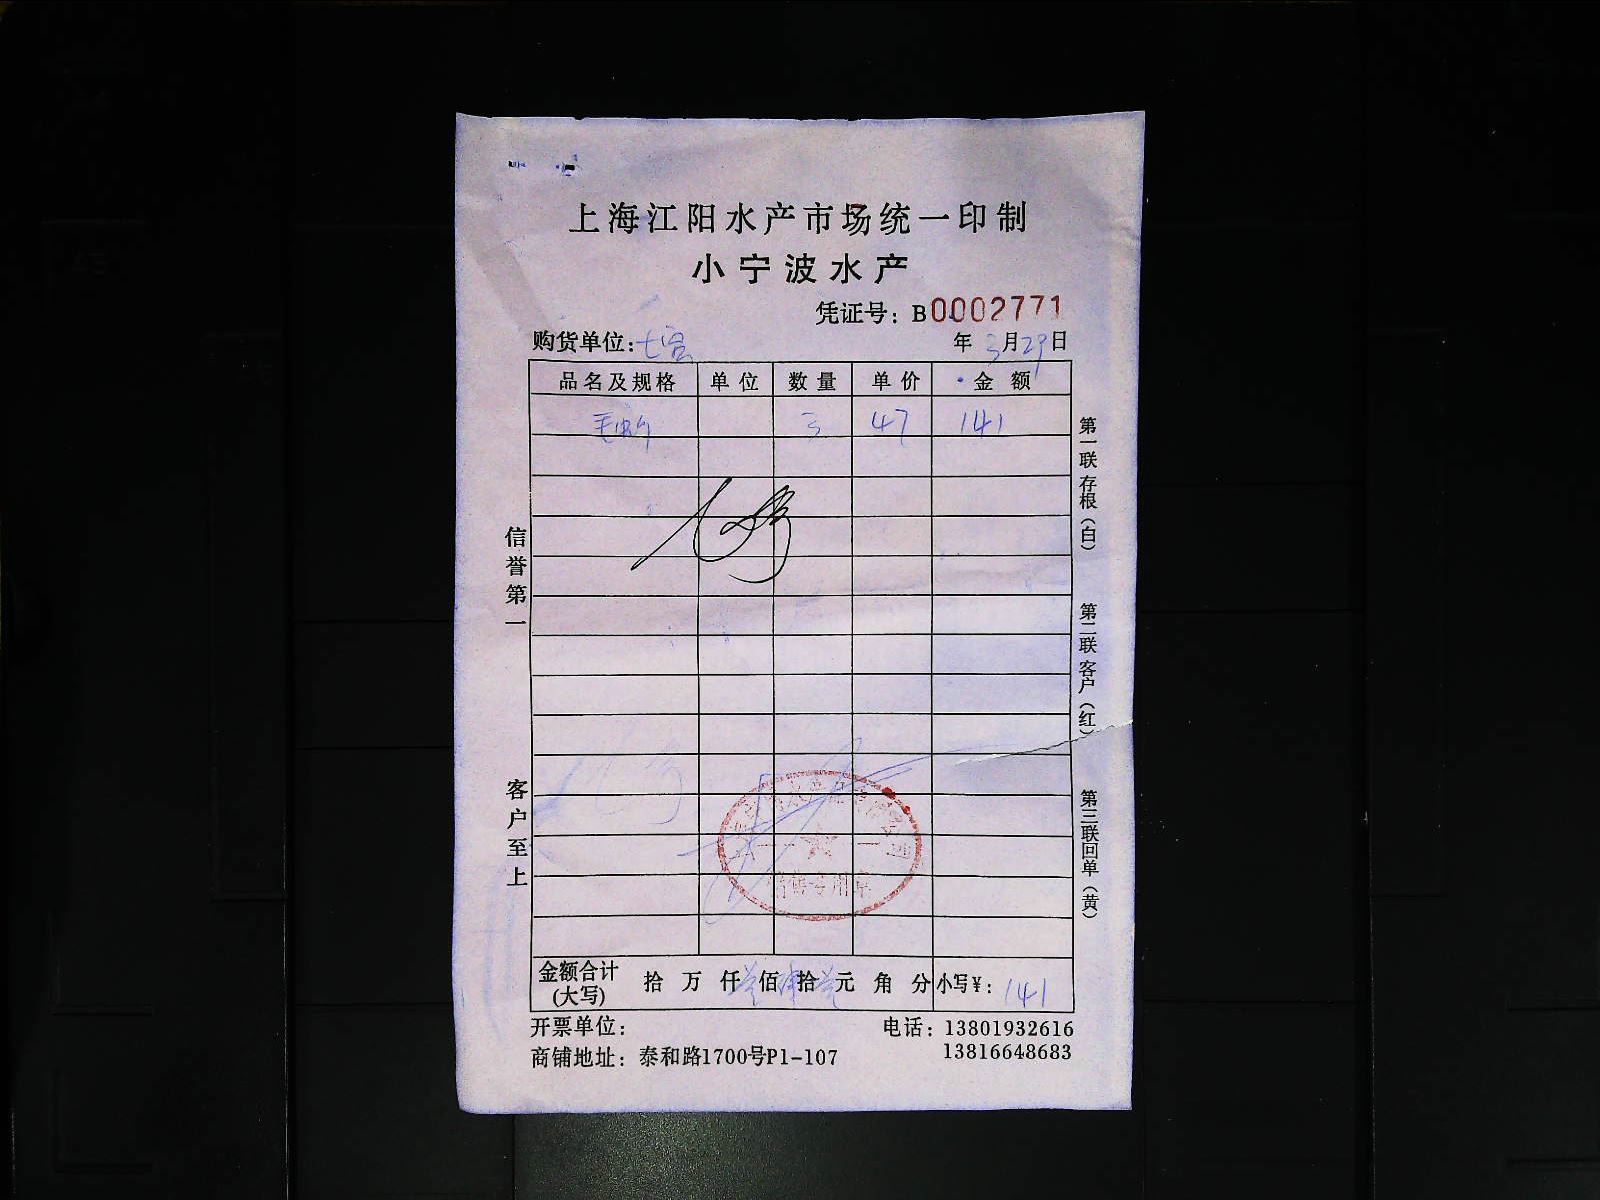 上海江阳水产市场统一印制
小宁波水产
凭证号：B0002771
购货单位：七宫 年 3月29日
品名及规格 单位 数量 单价 金额
毛蚶 三 47 141
信誉第一
客户至上
第一联 存根（白）
第二联 客户（红）
第三联 回单（黄）
金额合计(大写) 拾 万 仟 佰 拾 元 角 分 小写¥：141
开票单位： 电话：13801932616
商铺地址：泰和路1700号P1-107 13816648683